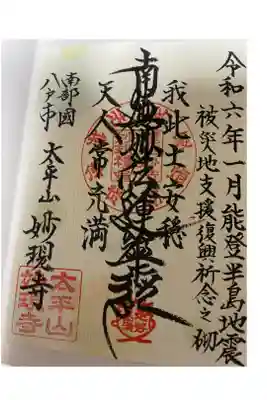 令和六年一月能登半島地震
被災地支援復興祈念之砌
我此土安穏
南無妙法蓮華経
天人常充満
南部國
八戸市
太平山 妙現寺
太平山
妙現寺